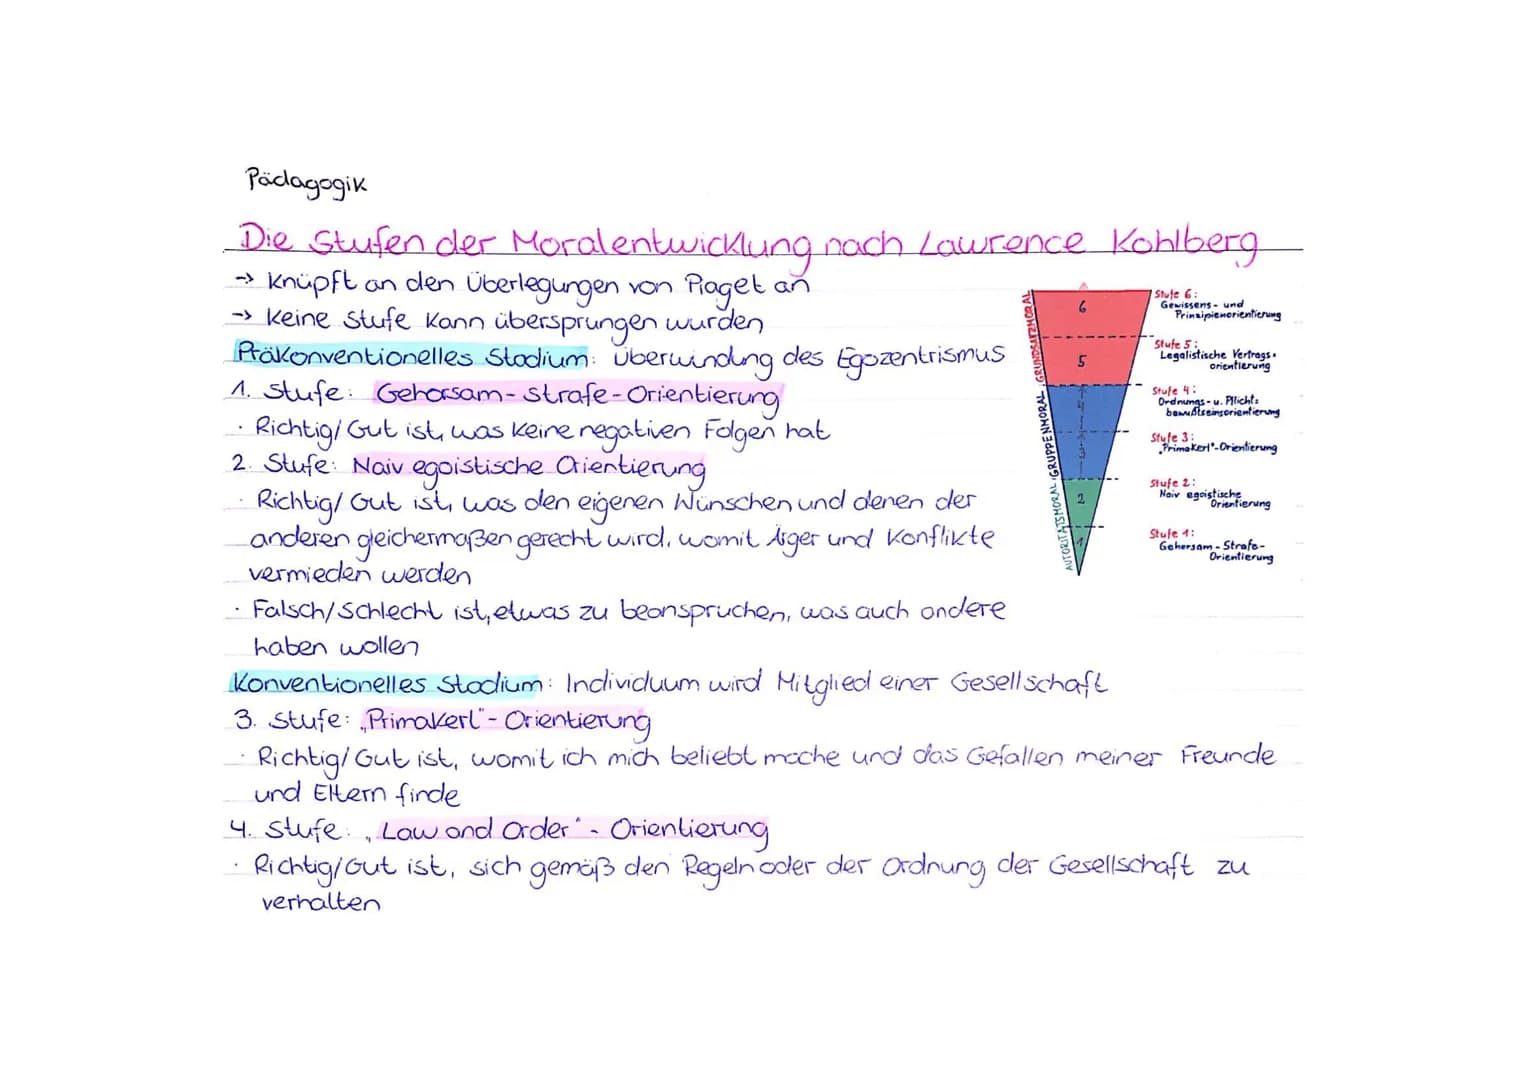 Pädagogik
Die Stufen der Moralentwicklung nach Lawrence Kohlberg
→ Knüpft an den Überlegungen von Piaget an
→ Keine Stufe kann übersprungen wurden
Präkonventionelles Stadium: Überwindung des Egozentrismus
1. Stufe: Gehorsam-Strafe-Orientierung
· Richtig/Gut ist, was keine negativen Folgen hat
2. Stufe: Naiv egoistische Orientierung
· Richtig/Gut ist, was den eigenen Wünschen und denen der
anderen gleichermaßen gerecht wird, womit Ärger und Konflikte
vermieden werden
· Falsch/Schlecht ist, etwas zu beanspruchen, was auch andere
haben wollen
Konventionelles Stadium: Individuum wird Mitglied einer Gesellschaft
3. Stufe: „Primakerl"-Orientierung
· Richtig/Gut ist, womit ich mich beliebt mache und das Gefallen meiner Freunde
und Eltern finde
4. Stufe: „Law and Order"- Orientierung
· Richtig/Gut ist, sich gemäß den Regeln oder der Ordnung der Gesellschaft zu
verhalten
AUTORITÄTSMORAL GRUPPENMORAL GRUNDSATZMORAL
6
5
4
3
2
1
Stufe 6:
Gewissens- und
Prinzipienorientierung
Stufe 5:
Legalistische Vertrags-
orientierung
Stufe 4:
Ordnungs- u. Pflicht:
bewußtseinsorientierung
Stufe 3:
„Primakerl"-Orientierung
Stufe 2:
Naiv egoistische
Orientierung
Stufe 1:
Gehorsam-Strafe-
Orientierung